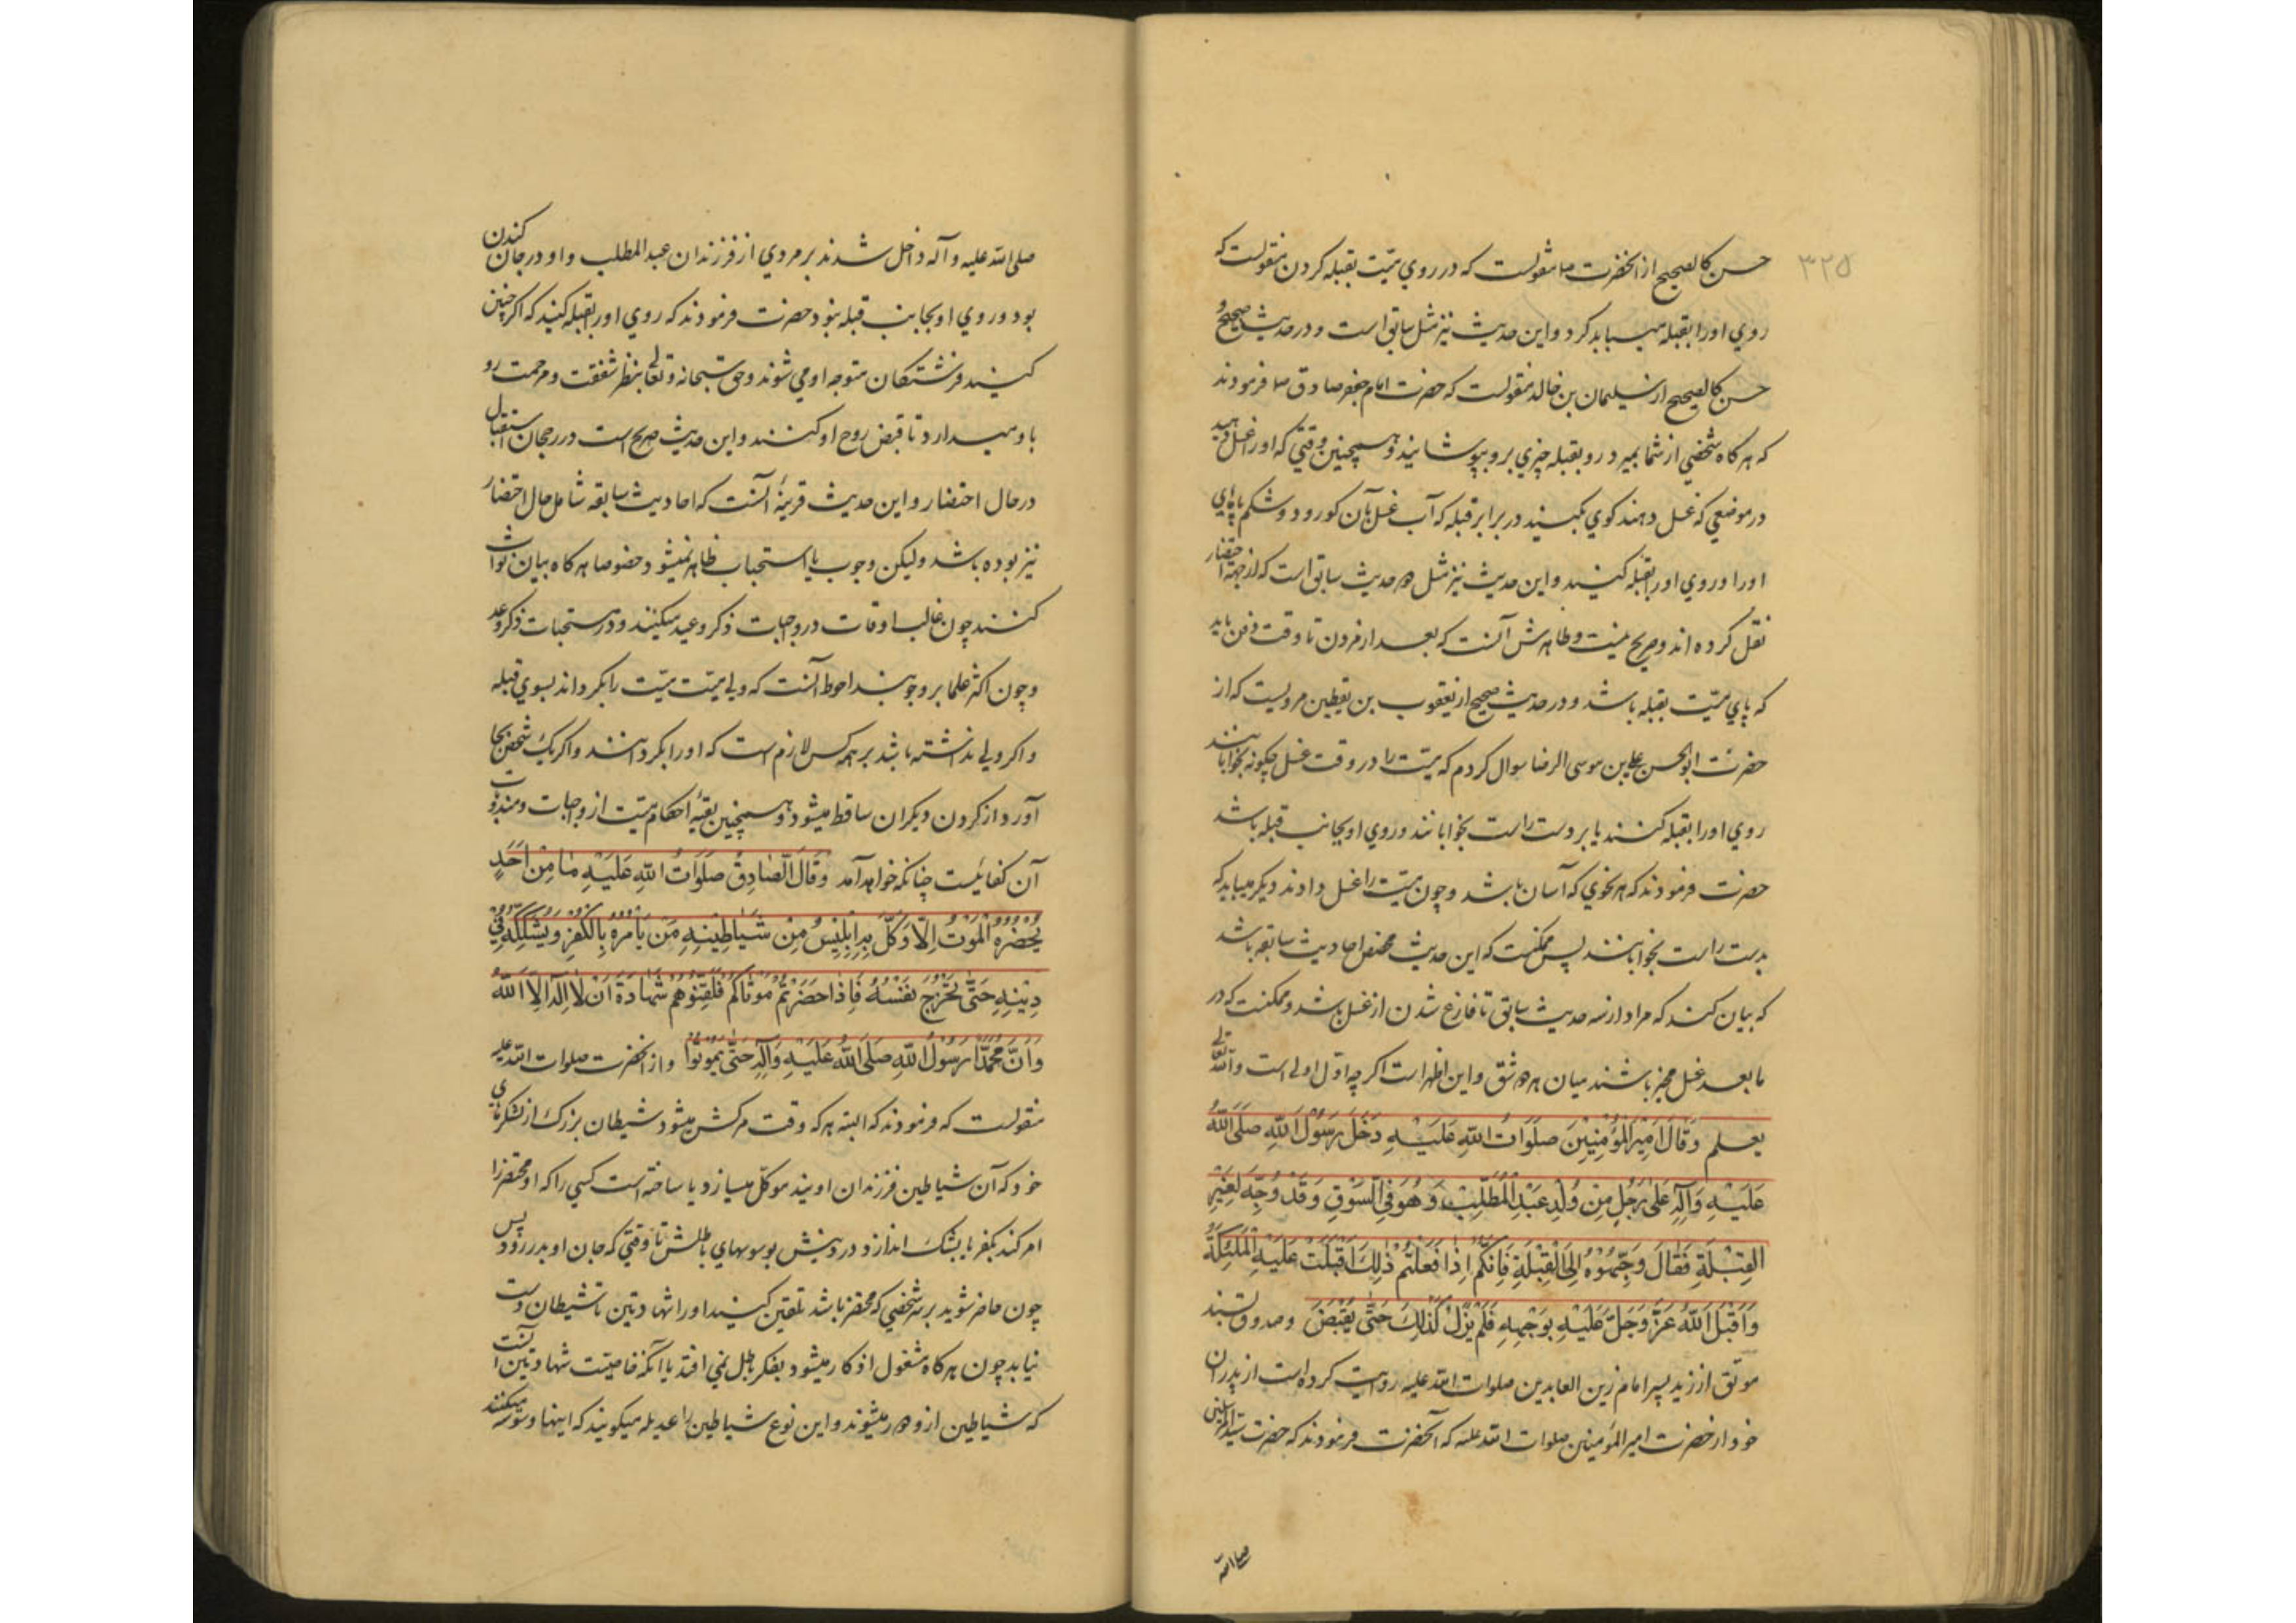 ۳۲۵
حسن کالصحیح از انحضرت ص منقولست که در روي میّت بقبله کردن منقولست که
روي اورا بقبله میباید کرد و این حدیث نیز مثل سابق است و در حدیث صحیح و
حسن کالصحیح از سلیمان بن خالد منقولست که حضرت امام جعفر صادق ص فرمودند
که هرگاه شخصي از شما بمیرد رو بقبله چیزي برو بپوشانید و همچنین وقتي که اورا غسل دهید
در موضعي که غسل دهند کوي بکنید در برابر قبله که آب غسل بآن کو رود و شکم پاهاي
اورا و روي اورا بقبله کنید و این حدیث نیز مثل دو حدیث سابق است که از جهة احتضار
نقل کرده اند و صریح نیست و ظاهرش آنست که بعد از مردن تا وقت دفن باید
که پاي میّت بقبله باشد و در حدیث صحیح از یعقوب بن یقطین مرویست که از
حضرت ابو الحسن علي بن موسی الرضا سوال کردم که میّت را در وقت غسل چکونه بخوابانند
روي اورا بقبله کنند یا بر دست راست بخوابانند و روي او بجانب قبله باشد
حضرت فرمودند که هر نحوي که آسان باشد و چون میّت را غسل دادند دیکر میباید که
بدست راست بخوابانند پس ممکنست که این حدیث مخصص احادیث سابقه باشد
که بیان کند که مراد از سه حدیث سابق تا فارغ شدن از غسل باشد و ممکنست که در
ما بعد غسل مخیر باشند میان هر دو شق و این اظهر است اکرچه اوّل اولي است والله تعالی
یعلم وَقَالَ اَمِیرُ المُؤْمِنِینَ صَلَوَاتُ اللهِ عَلَیْهِ دَخَلَ رَسُولُ اللهِ صَلَّی اللهُ
عَلَیْهِ وَآلِهِ عَلَی رَجُلٍ مِنْ وُلْدِ عَبْدِ الْمُطَّلِبِ وَهُوَ فِی السَّوْقِ وَقَدْ وُجِّهَ لِغَیْرِ
القِبْلَةِ فَقَالَ وَجِّهُوْهُ اِلَی الْقِبْلَةِ فَاِنَّکُمْ اِذَا فَعَلْتُمْ ذٰلِكَ اَقْبَلَتْ عَلَیْهِ الْمَلٰئِکَةُ
وَاَقْبَلَ اللهُ عَزَّ وَجَلَّ عَلَیْهِ بِوَجْهِهِ فَلَمْ یَزَلْ کَذٰلِكَ حَتّٰی یُقْبَضَ و صدوق بسند
موثّق از زید پسر امام زین العابدین صلوات الله علیه روایت کرده است از پدران
خود از حضرت امیر المؤمنین صلوات الله علیه که آنحضرت فرمودند که حضرت سیّد المرسلین
صلی الله
صلی الله علیه و آله داخل شدند بر مردي از فرزندان عبد المطلب و او در جان کندن
بود و روي او بجانب قبله نبود حضرت فرمودند که روي اورا بقبله کنید که اکر چنین
کنید فرشتکان متوجه او می شوند و حق سبحانه و تعالی بنظر شفقت و مرحمت رو
باو میدارد تا قبض روح او کنند و این حدیث صریح است در رجحان استقبال
در حال احتضار و این حدیث قرینهٔ آنست که احادیث سابقه شامل حال احتضار
نیز بوده باشد ولیکن وجوب یا استحباب ظاهر نمیشود خصوصا هرکاه بیان ثواب
کنند چون غالب اوقات در واجبات ذکر وعید میکنند و در مستحبات ذکر وعد
و چون اکثر علما بر وجوبند احوط آنست که ولي میّت میّت را بکرداند بسوي قبله
و اکر ولي نداشته باشد بر همه کس لازم است که اورا بکردانند و اکر یك شخص بجا
آورد از کردن دیکران ساقط میشود و همچنین بقیهٔ احکام میّت از واجبات و مندوب
آن کفائیست چنانکه خواهد آمد وَقَالَ الصَّادِقُ صَلَوَاتُ اللهِ عَلَیْهِ مَا مِنْ اَحَدٍ
یَحْضُرُهُ الْمَوْتُ اِلَّا وَکَّلَ بِهِ اِبْلِیْسُ مِنْ شَیَاطِیْنِهِ مَنْ یَأمُرُهُ بِالْکُفْرِ وَیُشَکِّکُهُ فِي
دِیْنِهِ حَتَّی تَخْرُجَ نَفْسُهُ فَاِذَا حَضَرْتُمْ مَوْتَاکُمْ فَلَقِّنُوْهُمْ شَهَادَةَ اَنْ لَا اِلٰهَ اِلَّا اللهُ
وَاَنَّ مُحَمَّدًا رَسُوْلُ اللهِ صَلَّی اللهُ عَلَیْهِ وَآلِهِ حَتّٰی یَمُوتُوْا و از انحضرت صلوات الله علیه
منقولست که فرمودند که البته هر که وقت مرکش میشود شیطان بزرك از لشکرهاي
خود که آن شیاطین فرزندان اویند موکّل میسازد یا ساخته است کسي را که او محتضر را
امر کند بکفر یا بشك اندازد در دینش بوسوسهاي باطلش تا وقتي که جان او بدر رود پس
چون حاضر شوید بر سر شخصي که محتضر باشد تلقین کنید اورا شهادتین تا شیطان دست
نیابد چون هرکاه مشغول اذکار میشود بفکر باطل نمي افتد یا آنکه خاصیّت شهادتین آنست
که شیاطین ازو دور میشوند و این نوع شیاطین را عدیله میکویند که اینها وسوسه میکنند